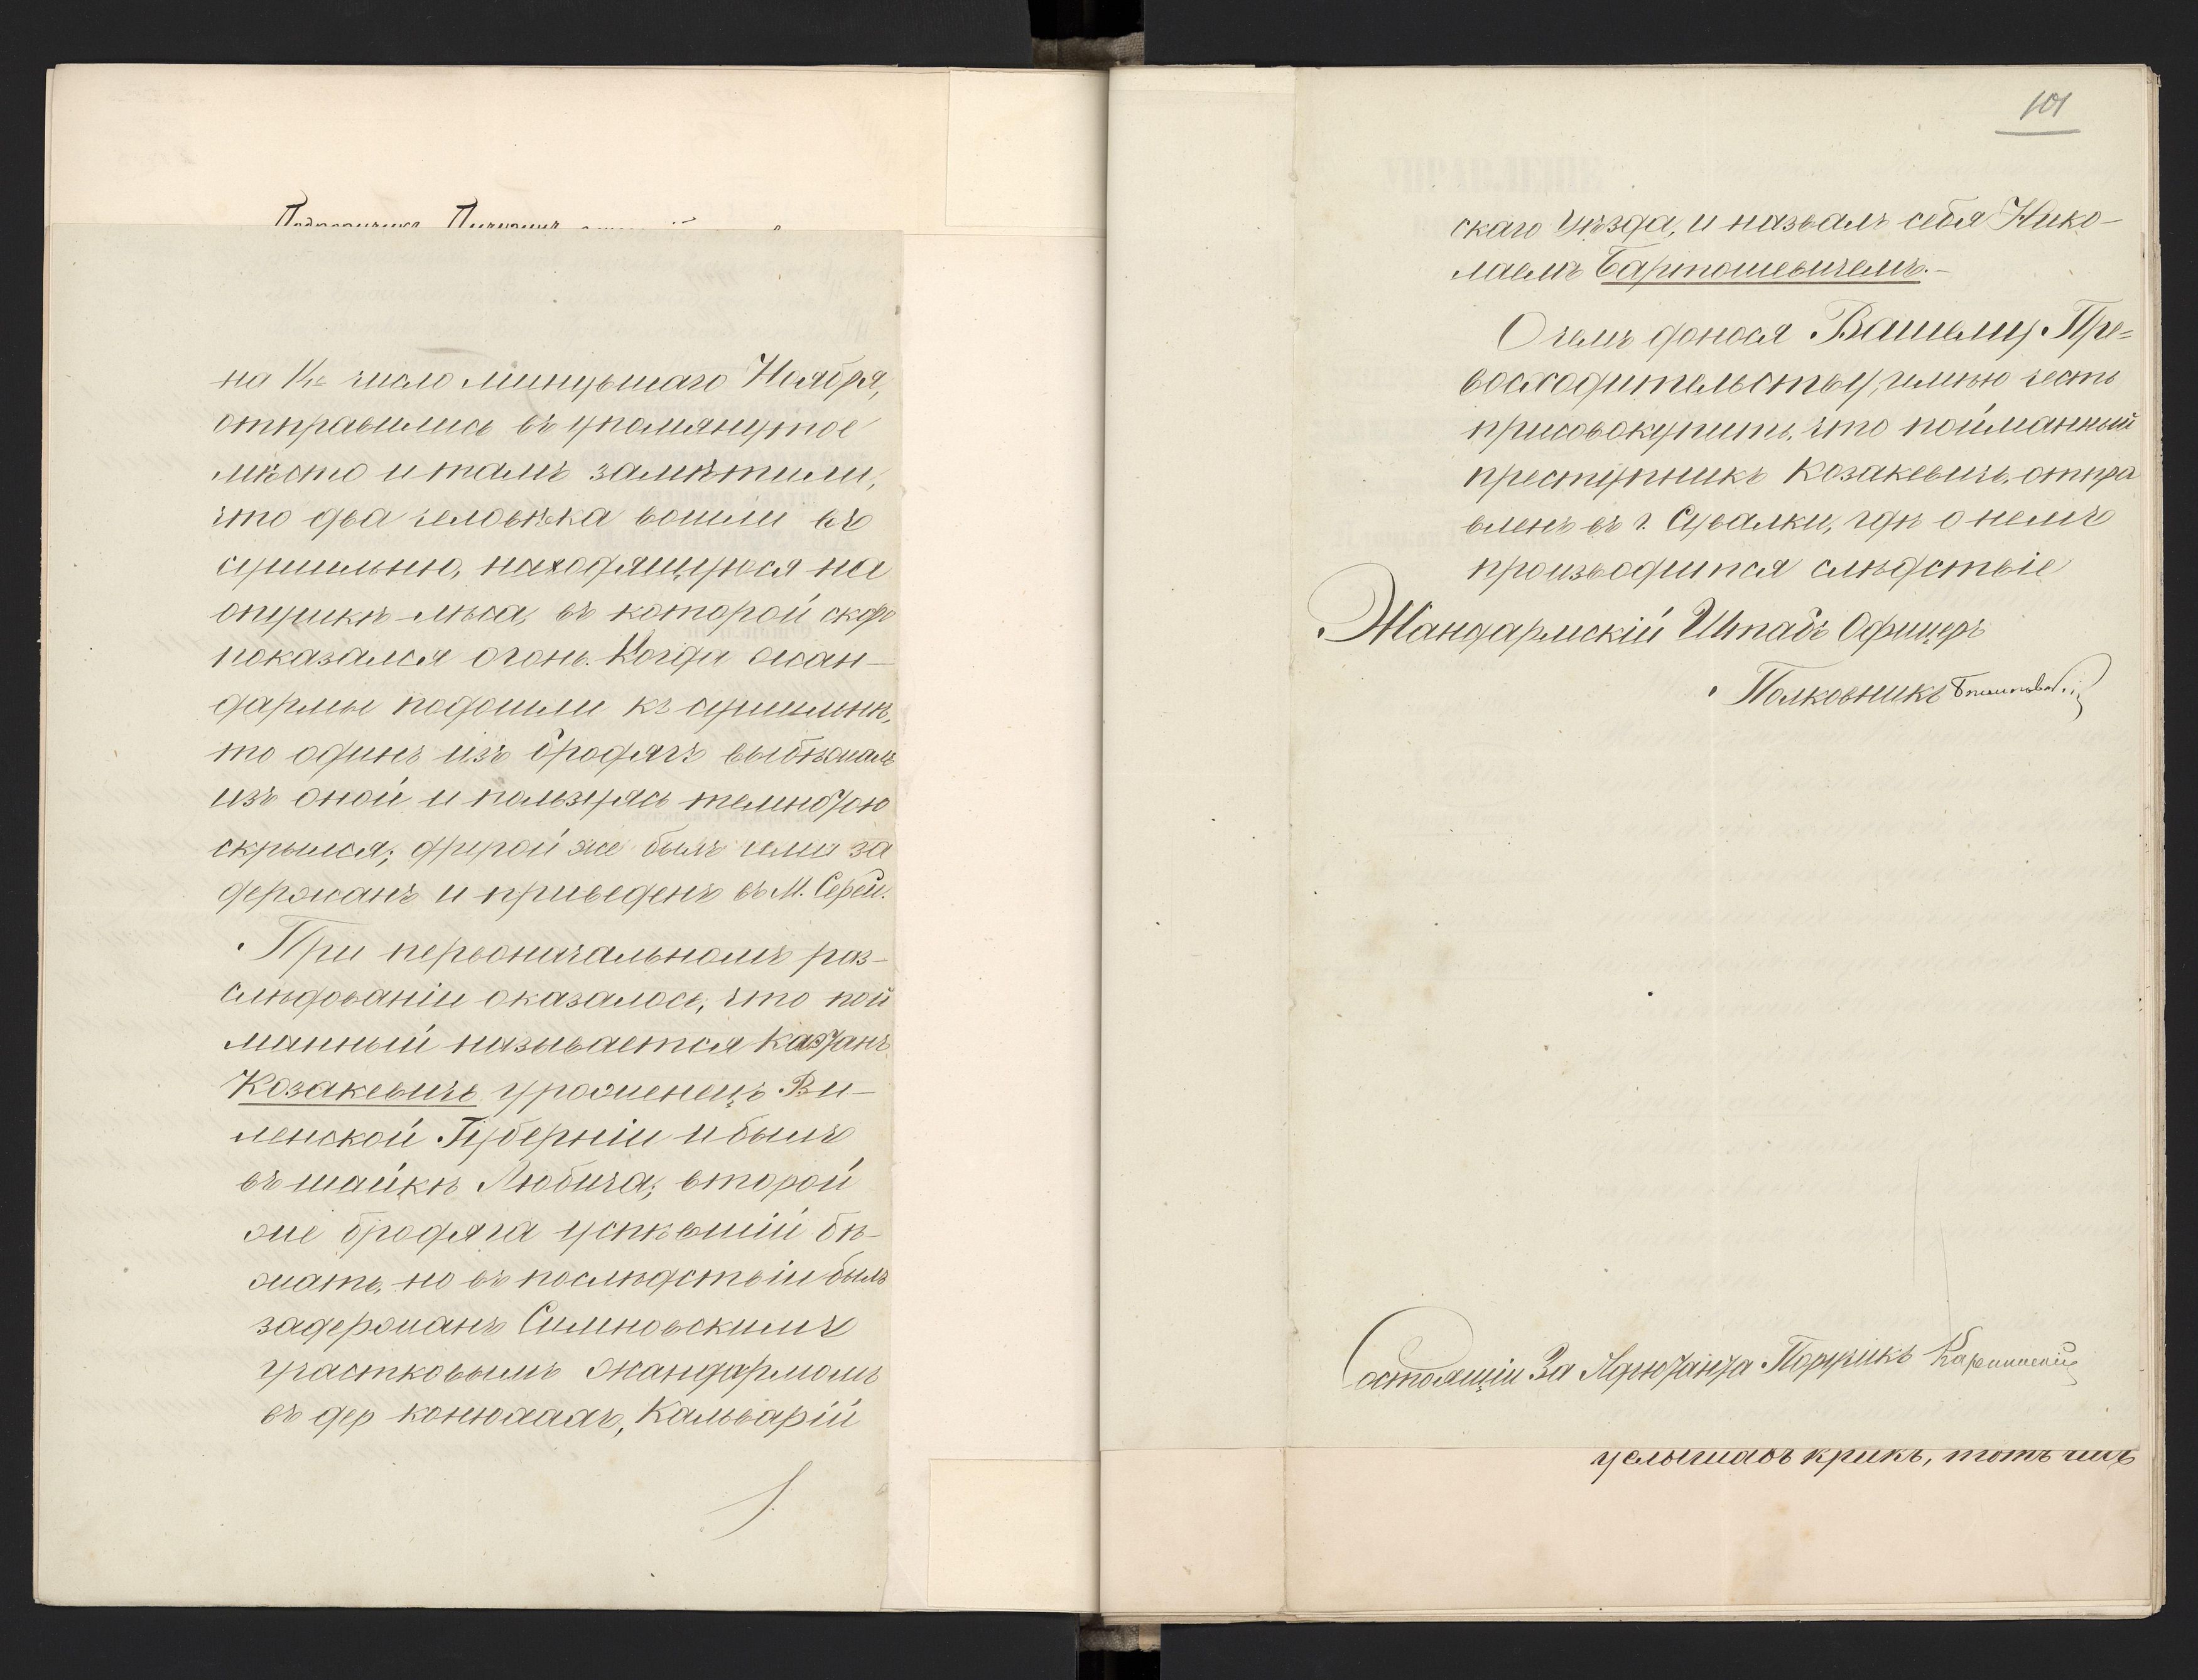 на 14 число минувшаго Ноября,
отправились въ упомянутое
мѣсто и тамъ замѣтили,
что два человѣка вошли въ
сушильню, находящуюся на
опушкѣ лѣса, въ которой скоро
показался огонь. Когда жан-
дармы подошли къ сушильнѣ,
то одинъ изъ бродягъ выбѣжалъ
изъ оной и пользуясь темнотою
скрылся; другой же былъ ими за
держанъ и приведенъ въ М. Сереи.
При первоначальномъ раз-
слѣдованіи оказалось, что пой
манный называется Каэтанъ
Козакевичъ уроженецъ Ви-
ленской Губерніи и былъ
въ шайкѣ Любича; второй
же бродяга успѣвшій бѣ-
жать, но въ послѣдствіи былъ
задержанъ Симновскимъ
участковымъ жандармомъ
въ дер Конюхахъ, Кальварій
101
скаго Уѣзда, и назвалъ себя Нико-
лаемъ Бартошевичемъ.-
О чемъ донося Вашему Пре=
восходительству, имѣю честь
присовокупить, что пойманный
преступникъ Козакевичъ, отпра
вленъ въ г. Сувалки, гдѣ о немъ
производится слѣдствіе
Жандармскій Штабъ Офицеръ
Полковникъ
Состоящій За Адъютанта Поручикъ
услышавъ крикъ, тотъ часъ